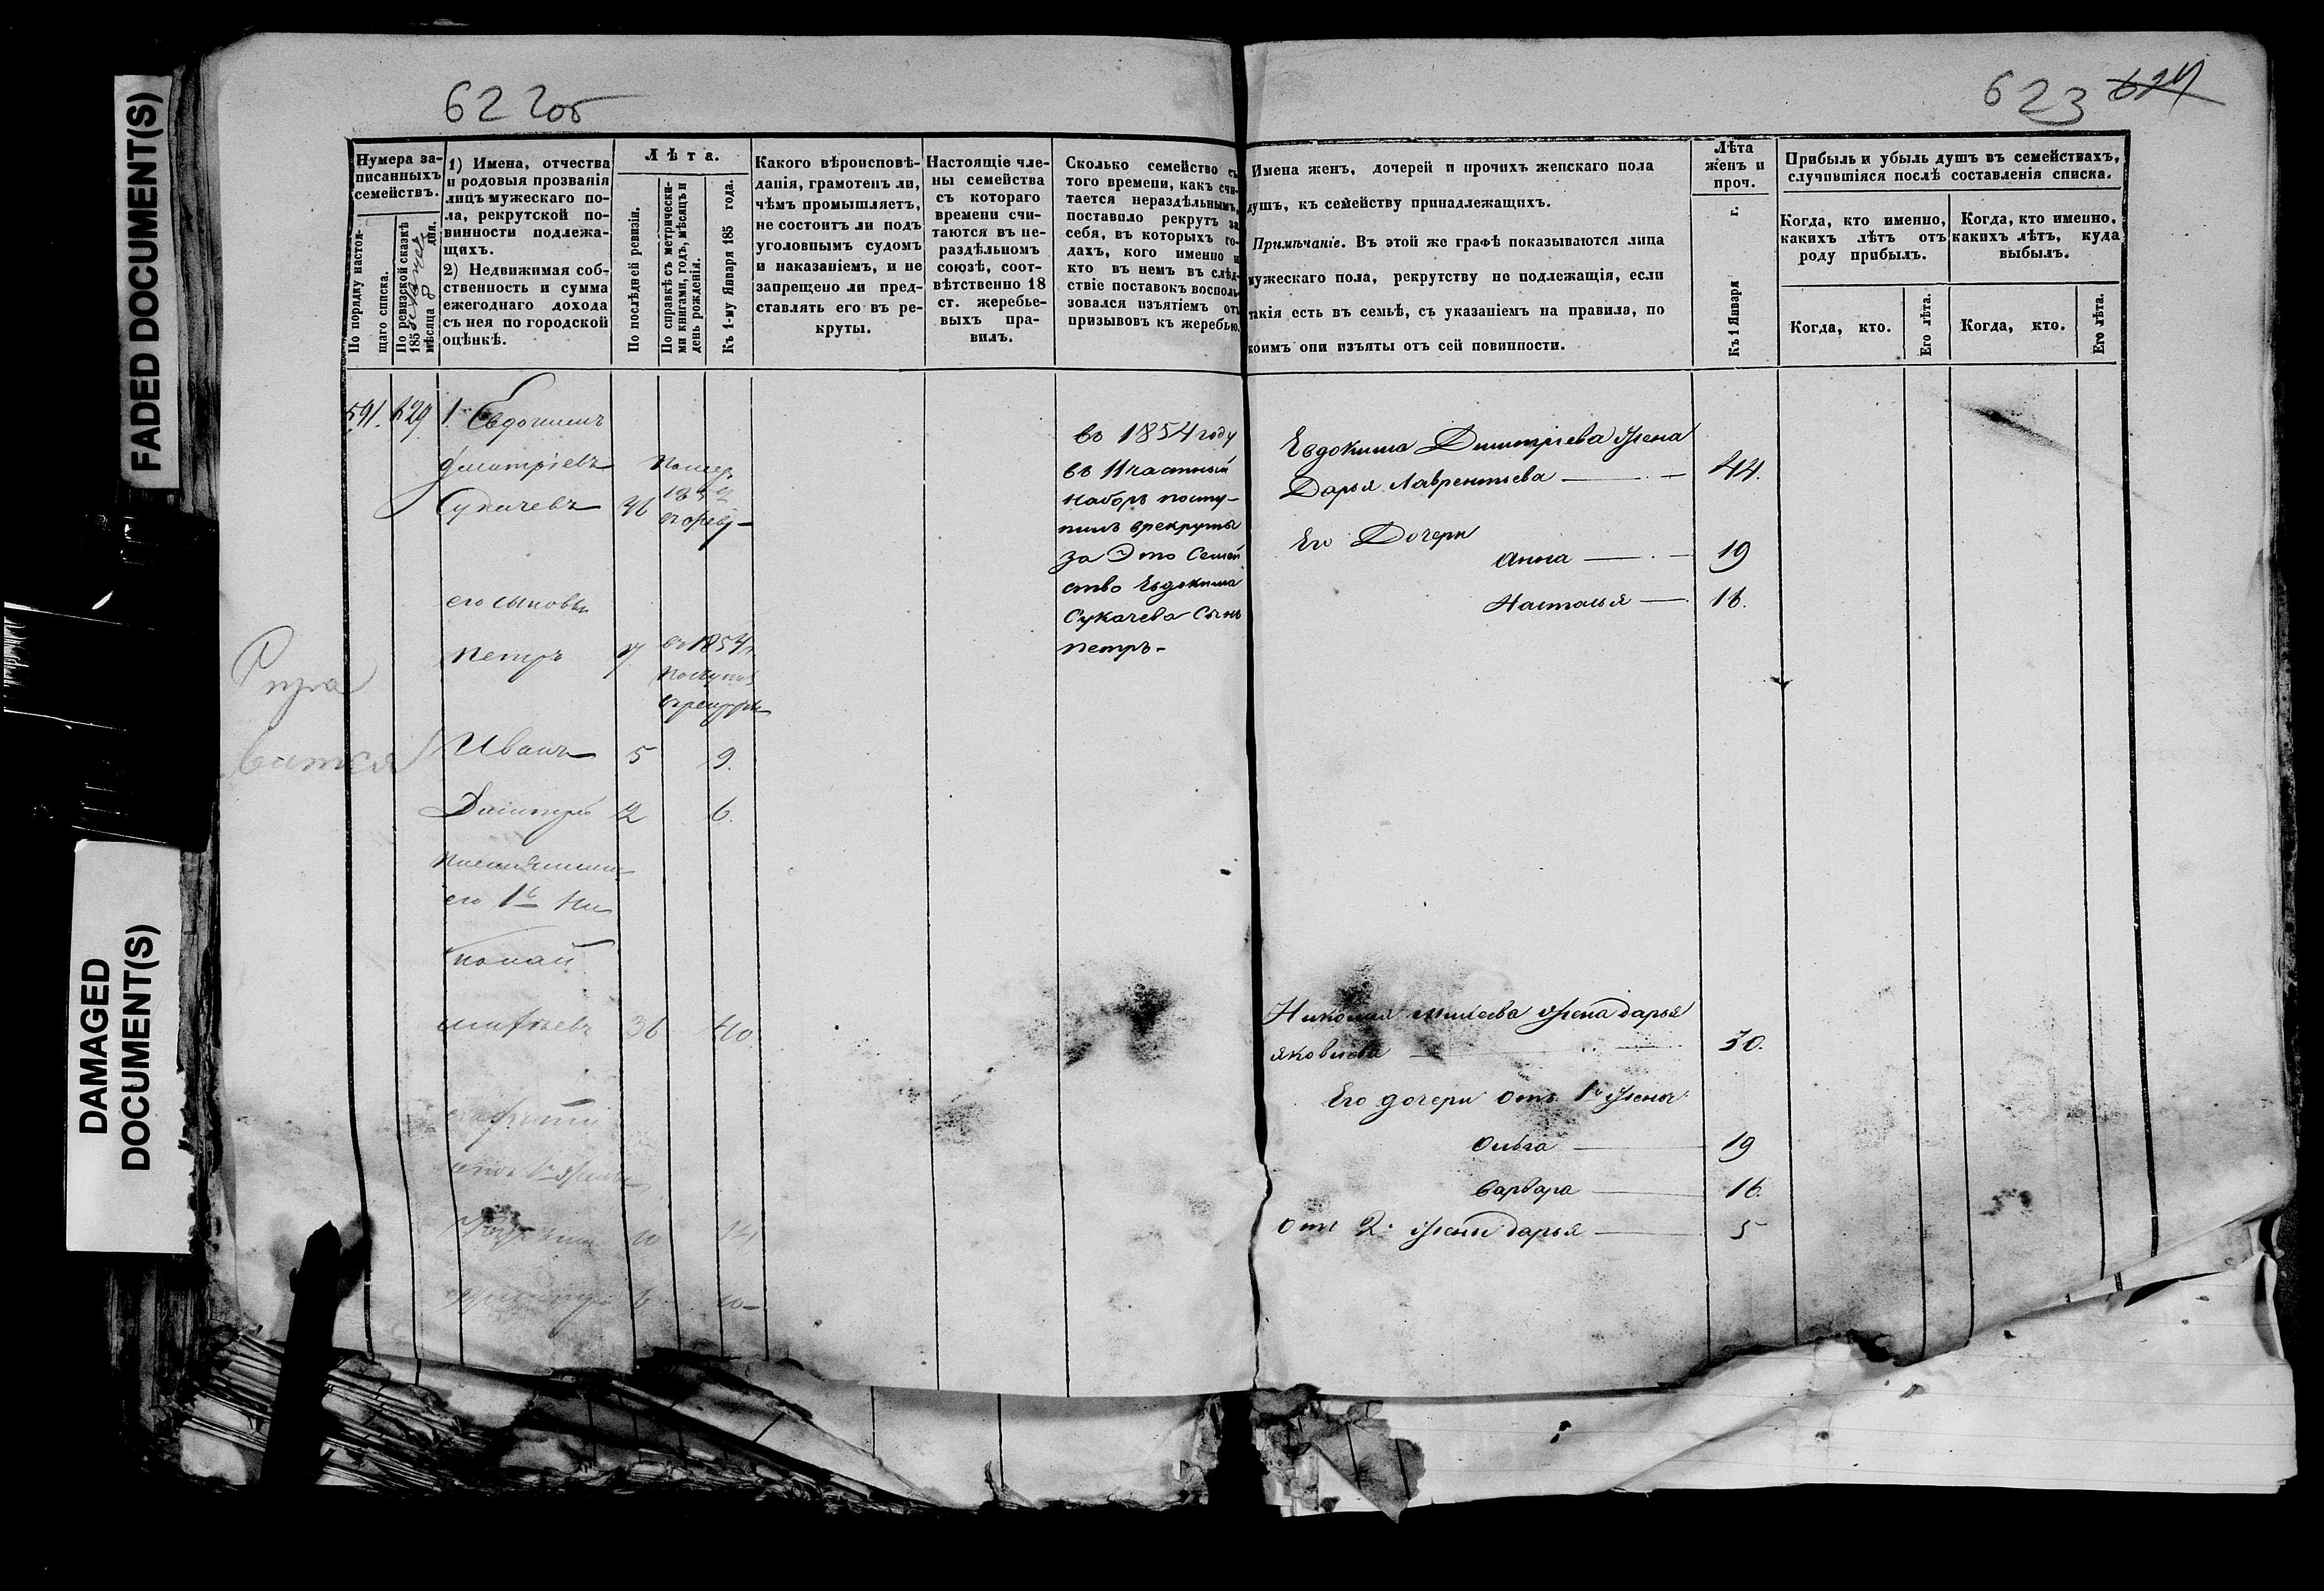 FADED DOCUMENT(S)
DAMAGED
DOCUMENT(S)
622об
623 624
Нумера за-
писанныхъ
семействъ.
По порядку настоя-
щаго списка.
По ревизской сказкѣ
185 года
мѣсяца 8 дня.
1) Имена, отчества
и родовыя прозванія
лицъ мужескаго по-
ла, рекрутской по-
винности подлежа-
щихъ.
2) Недвижимая соб-
ственность и сумма
ежегоднаго дохода
съ нея по городской
оцѣнкѣ.
Лѣта.
По послѣдней ревизіи.
По справкѣ съ метрически-
ми книгами, годъ, мѣсяцъ и
день рожденія.
Къ 1-му Января 185 года.
Какого вѣроисповѣ-
данія, грамотенъ ли,
чѣмъ промышляетъ,
не состоитъ ли подъ
уголовнымъ судомъ
и наказаніемъ, и не
запрещено ли пред-
ставлять его въ ре-
круты.
Настоящіе чле-
ны семейства
съ котораго
времени счи-
таются въ не-
раздѣльномъ
союзѣ, соот-
вѣтственно 18
ст. жеребье-
выхъ пра-
вилъ.
Сколько семейство съ
того времени, какъ счи-
тается нераздѣльнымъ,
поставило рекрутъ за
себя, въ которыхъ го-
дахъ, кого именно и
кто въ немъ въ слѣд-
ствіе поставокъ восполь-
зовался изъятіемъ отъ
призывовъ къ жеребью.
Имена женъ, дочерей и прочихъ женскаго пола
душъ, къ семейству принадлежащихъ.
Примѣчаніе. Въ этой же графѣ показываются лица
мужескаго пола, рекрутству не подлежащія, если
такія есть въ семьѣ, съ указаніемъ на правила, по
коимъ они изъяты отъ сей повинности.
Лѣта
женъ и
проч.
Къ 1 Января г.
Прибыль и убыль душъ въ семействахъ,
случившіяся послѣ составленія списка.
Когда, кто именно,
какихъ лѣтъ отъ
роду прибылъ.
Когда, кто именно,
какихъ лѣтъ, куда
выбылъ.
Когда, кто.
Его лѣта.
Когда, кто.
Его лѣта.
591. 629 1. Евдокимъ
Дмитріевъ
Сукачевъ 36
его сыновья
Петръ въ 1854
поступилъ
врекруты
Иванъ 5 9.
Дмитрій 2 6.
племянники
его 1й Ни
колай
Михѣевъ 36 40
отъ 1й жены
10 14
6 10
въ 1854 году
въ 11 частный
наборъ посту-
пилъ врекруты
за Это Семей
ство Евдокима
Сукачева Сынъ
Петръ-
Евдокима Дмитріева жена
Дарья Лаврентьева 44.
Его Дочери
Анна 19
Наталья 16.
Николая Михеева жена дарья
яковлева 30.
Его дочери Отъ 1й жены
Ольга 19
Варвара 16.
Отъ 2й жены дарья 5